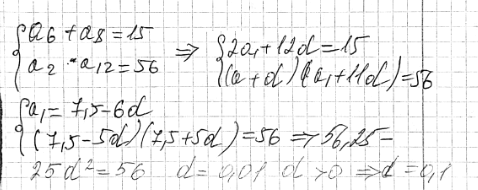 {a₆ + a₈ = 15 ⇒ {2a₁ + 12d = 15
{a₂ · a₁₂ = 56 {(a + d)(a₁ + 11d) = 56
{a₁ = 7,5 - 6d
{(7,5 - 5d)(7,5 + 5d) = 56 ⇒ 56,25 -
25d² = 56 d = 0,01 d > 0 ⇒ d = 0,1